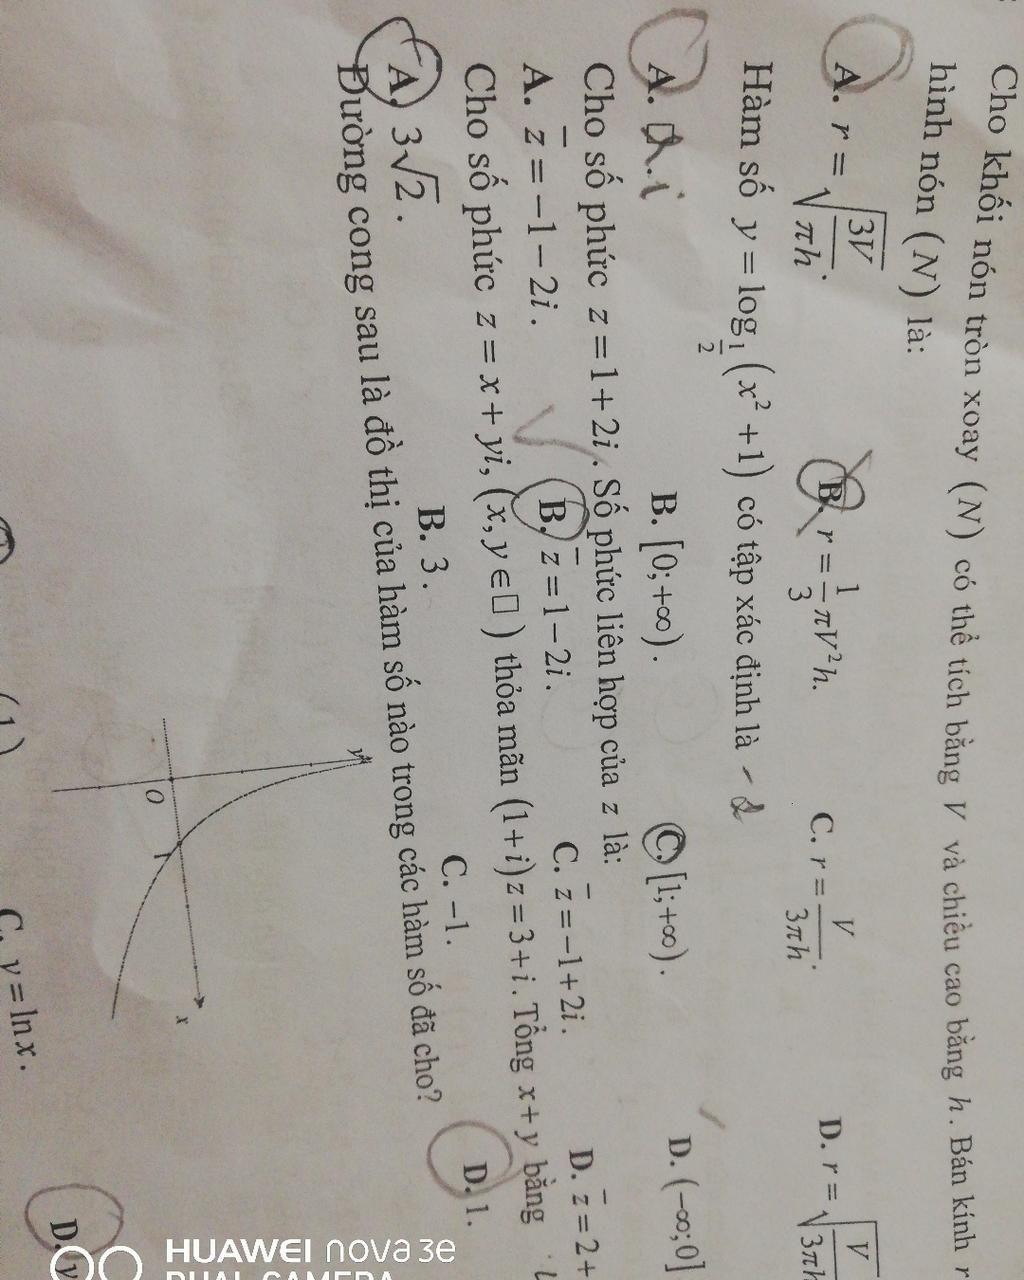 Cho khối nón tròn xoay (N) có thể tích bằng V và chiều cao bằng h. Bán kính r
hình nón (N) là:
A. r = √(3V/πh). B. r = 1/3 πV²h. C. r = V/3πh. D. r = √(V/3πh
Hàm số y = log_{1/2}(x² + 1) có tập xác định là
A. B. [0; +∞). C. [1; +∞). D. (−∞; 0]
Cho số phức z = 1 + 2i. Số phức liên hợp của z là:
A. z̄ = −1 − 2i. B. z̄ = 1 − 2i. C. z̄ = −1 + 2i. D. z̄ = 2 +
Cho số phức z = x + yi, (x, y ∈ □) thỏa mãn (1 + i)z = 3 + i. Tổng x + y bằng
A. 3√2. B. 3. C. −1. D. 1.
Đường cong sau là đồ thị của hàm số nào trong các hàm số đã cho?
y
O
x
C. y = ln x. D. y
HUAWEI nova 3e
DUAL CAMERA